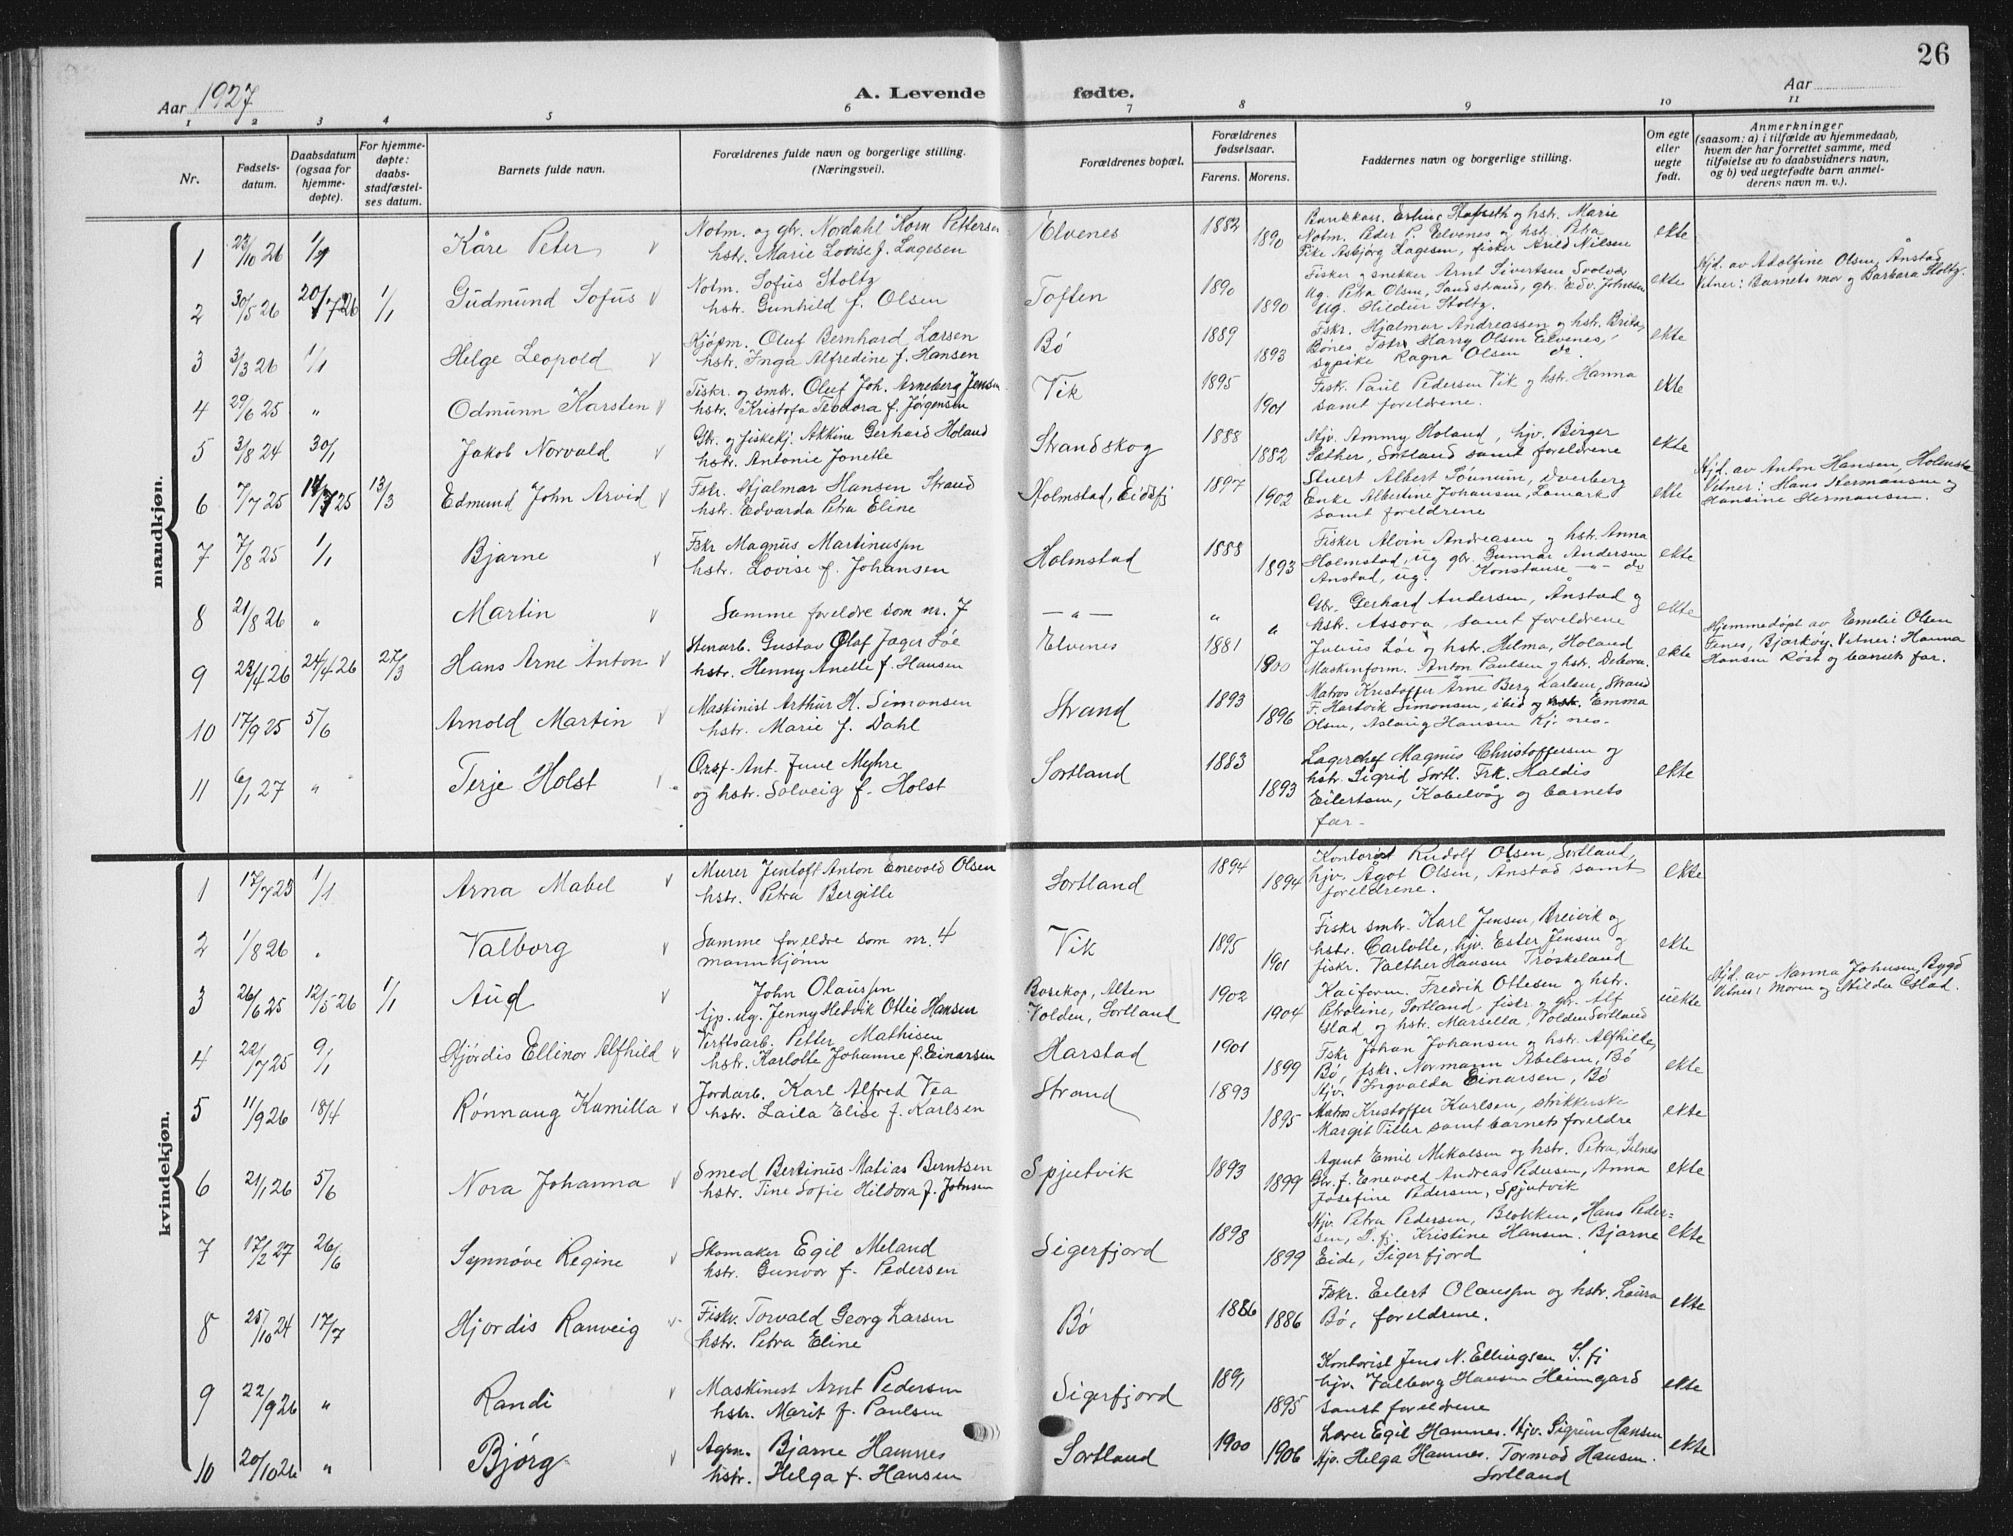 26
Aar 1927
A. Levende fødte.
Aar
1 2 3 4 5 6 7 8 9 10 11
Nr.
Fødsels-
datum.
Daabsdatum
(ogsaa for
hjemme-
døpte).
For hjemme-
døpte:
daabs-
stadfæstel-
ses datum.
Barnets fulde navn.
Forældrenes fulde navn og borgerlige stilling.
(Næringsvei).
Forældrenes bopæl.
Forældrenes
fødselsaar.
Farens. Morens.
Faddernes navn og borgerlige stilling.
Om egte
eller
uegte
født.
Anmerkninger
(saasom: a) i tilfælde av hjemmedaab,
hvem der har forrettet samme, med
tilføielse av to daabsvidners navn,
og b) ved uegtefødte barn anmel-
derens navn m. v.).
mandkjøn.
1 23/10 26 1/1 Kåre Peter
Notm. og gbr. Nordahl Korn Pettersen
hstr. Marie Lovise f. Lagesen
Elvenes 1882 1890
Bankkass. Erling Hafseth og hstr. Marie
Notm. Peder P. Elvenes og hstr. Petra
Pike Asbjørg Hagesen, fisker Arild Nilsen
ekte
2 30/5 26 20/7 26 1/1 Gudmund Sofus
Notm. Sofus Stoltz
hstr. Gunhild f. Olsen
Toften 1890 1890
Fisker og snekker Arnt Sivertsen Svolvær
Ug. Petra Olsen, Sandstrand, gbr. Edv. Johnsen
Ug. Hildur Stoltz.
ekte
Hjd. av Adolfine Olsen, Ånstad
Vitner: Barnets mor og Barbara Stoltz.
3 3/3 26 1/1 Helge Leopold
Kjøpm. Oluf Bernhard Larsen
hstr. Inga Alfredine f. Hansen
Bø 1889 1893
Fskr. Hjalmar Andreassen og hstr. Brita,
Bønes Fskr. Harry Olsen Elvenes,
sypike Ragna Olsen do.
ekte
4 29/6 25 " Odmunn Karsten
Fiskr. og smbr. Oluf Joh. Arneberg Jensen
hstr. Kristofa Teodora f. Jørgensen
Vik 1895 1901
Fisk. Paul Pedersen Vik og hstr. Hanna
samt foreldrene.
ekte
5 3/8 24 30/1 Jakob Norvald
Gbr. og fiskekj. Akkine Gerhard Holand
hstr. Antonie Jonette
Strandskog 1888 1882
Hjv. Ammy Holand, hjv. Birger
Sæther, Sortland samt foreldrene
ekte
6 7/7 25 14/7 25 13/3 Edmund John Arvid
Fskr. Hjalmar Hansen Strand
hstr. Edvarda Petra Eline
Holmstad, Eidsfj 1897 1902
Stuert Albert Sønnum, Dverberg
Enke Albertine Johansen, Lamark
samt foreldrene
ekte
Hjd. av Anton Hansen, Holmsta
Vitner: Hans Hermansen og
Hansine Hermansen.
7 7/8 25 1/1 Bjarne
Fskr Magnus Martinussen
hstr. Lovise f. Johansen
Holmstad 1888 1893
Fisker Alvin Andreasen og hstr. Anna
Holmstad, ug gbr. Gunnar Andersen
Anstad, ug. Konstanse - " - do
ekte
8 21/8 26 " Martin
Samme foreldre som nr. 7
— " — " "
Gbr. Gerhard Andersen, Ånstad og
hstr. Assora, samt foreldrene
ekte
9 23/4 26 24/4 26 27/3 Hans Arne Anton
Stenarb. Gustav Olaf Jæger Løe
hstr. Henny Anette f. Hansen
Elvenes 1881 1900
Julius Løe og hstr. Helma, Holand
Maskinform. Anton Paulsen og hstr. Debora.
ekte
Hjemmedøpt av Emelie Olsen
Fenes, Bjarkøy. Vitner: Hanna
Hansen Røst og barnets far.
10 17/9 25 5/6 Arnold Martin
Maskinist Arthur H. Simonsen
hstr. Marie f. Dahl
Strand 1893 1896
Matros Kristoffer Arne Berg Karlsen, Strand
F. Hartvik Simonsen, ibid og Emma
Olsen, Aslaug Hansen Kj. nes.
11 6/1 27 " Terje Holst
Ant. Juul Myhre
og hstr. Solveig f. Holst
Sortland 1883 1893
Lagerchef Magnus Christoffersen og
hstr. Sigrid Sortl. Frk. Haldis
Eilertsen, Kabelvåg og barnets
far.
ekte
kvindekjøn.
1 17/7 25 1/1 Arna Mabel
Murer Jentoft Anton Enevold Olsen
hstr. Petra Bergitte
Sortland 1894 1894
Kontorist Rudolf Olsen, Sortland,
hjv. Ågot Olsen, Ånstad samt
foreldrene.
ekte
2 1/8 26 " Valborg
Samme foreldre som nr. 4
mannkjønn
Vik 1895 1901
Fiskr smbr. Karl Jensen, Breivik og
hstr. Carlotte, hjv. Ester Jensen og
fiskr. Valther Hansen Troskeland
ekte
3 26/6 25 12/5-26 1/1 Aud
John Olaussen
tjp. ug. Jenny Hedvik Ottie Hansen
Bosekop, Alten
Volden, Sortland
1902 1904
Kaiform. Fredrik Ottesen og hstr.
Petroline, Sortland, fiskr og gbr. Alf
Stad og hstr. Marsella, Volden Sortland
uekte
Hjd. av Nanna Johnsen, Bygd
Vitner: moren og Hilda Estad.
4 22/7 25 9/1 Hjørdis Ellinor Alfhild
Verftsarb. Petter Mathisen
hstr. Karlotte Johanne f. Einarsen
Harstad 1901 1899
Fskr Johan Johansen og hstr. Alfhilde,
Bø, fskr. Normann Abelsen, Bø
Hjv. Ingvalda Einarsen, Bø
ekte
5 11/9 26 18/4 Rønnaug Kamilla
Jordarb. Karl Alfred Vea
hstr. Laila Elise f. Karlsen
Strand 1893 1895
Matros Kristoffer Karlsen, strikkerske
Margit Tiller samt barnets foreldre
ekte
6 21/1 26 5/6 Nora Johanna
Smed Bertinus Matias Berntsen
hstr. Tine Sofie Hildora f. Johnsen
Spjutvik 1893 1899
Agent Emil Mikalsen og hstr. Petra, Selnes
Gbr. f. Enevold Andreas Pedersen, Anna
Josefine Pedersen, Spjutvik
ekte
7 17/2 27 26/6 Synnøve Regine
Skomaker Egil Meland
hstr. Gunvor f. Pedersen
Sigerfjord 1898 1899
Hjv. Petra Pedersen, Blokken, Hans Peder=
sen, S. fj. Kristine Hansen. Bjarne
Eide, Sigerfjord
ekte
8 25/10 24 17/7 Hjordis Ranveig
Fiskr. Torvald Georg Larsen
hstr. Petra Eline
Bø 1886 1886
Fskr. Eilert Olaussen og hstr. Laura
Bø, foreldrene.
ekte
9 22/9 26 " Randi
Maskinist Arnt Pedersen
hstr. Marit f. Paulsen
Sigerfjord 1891 1895
Kontorist Jens N. Ellingsen S. fj
hjv. Valborg Hansen Heimgard
samt foreldrene
ekte
10 20/10 26 " Bjørg
Agrn. Bjarne Hamnes
hstr. Helga f. Hansen
Sortland 1900 1906
Lærer Egil Hamnes. Hjv. Sigrun Hansen
Hjv. Helga Hamnes. Tormod Hansen.
Sortland
ekte